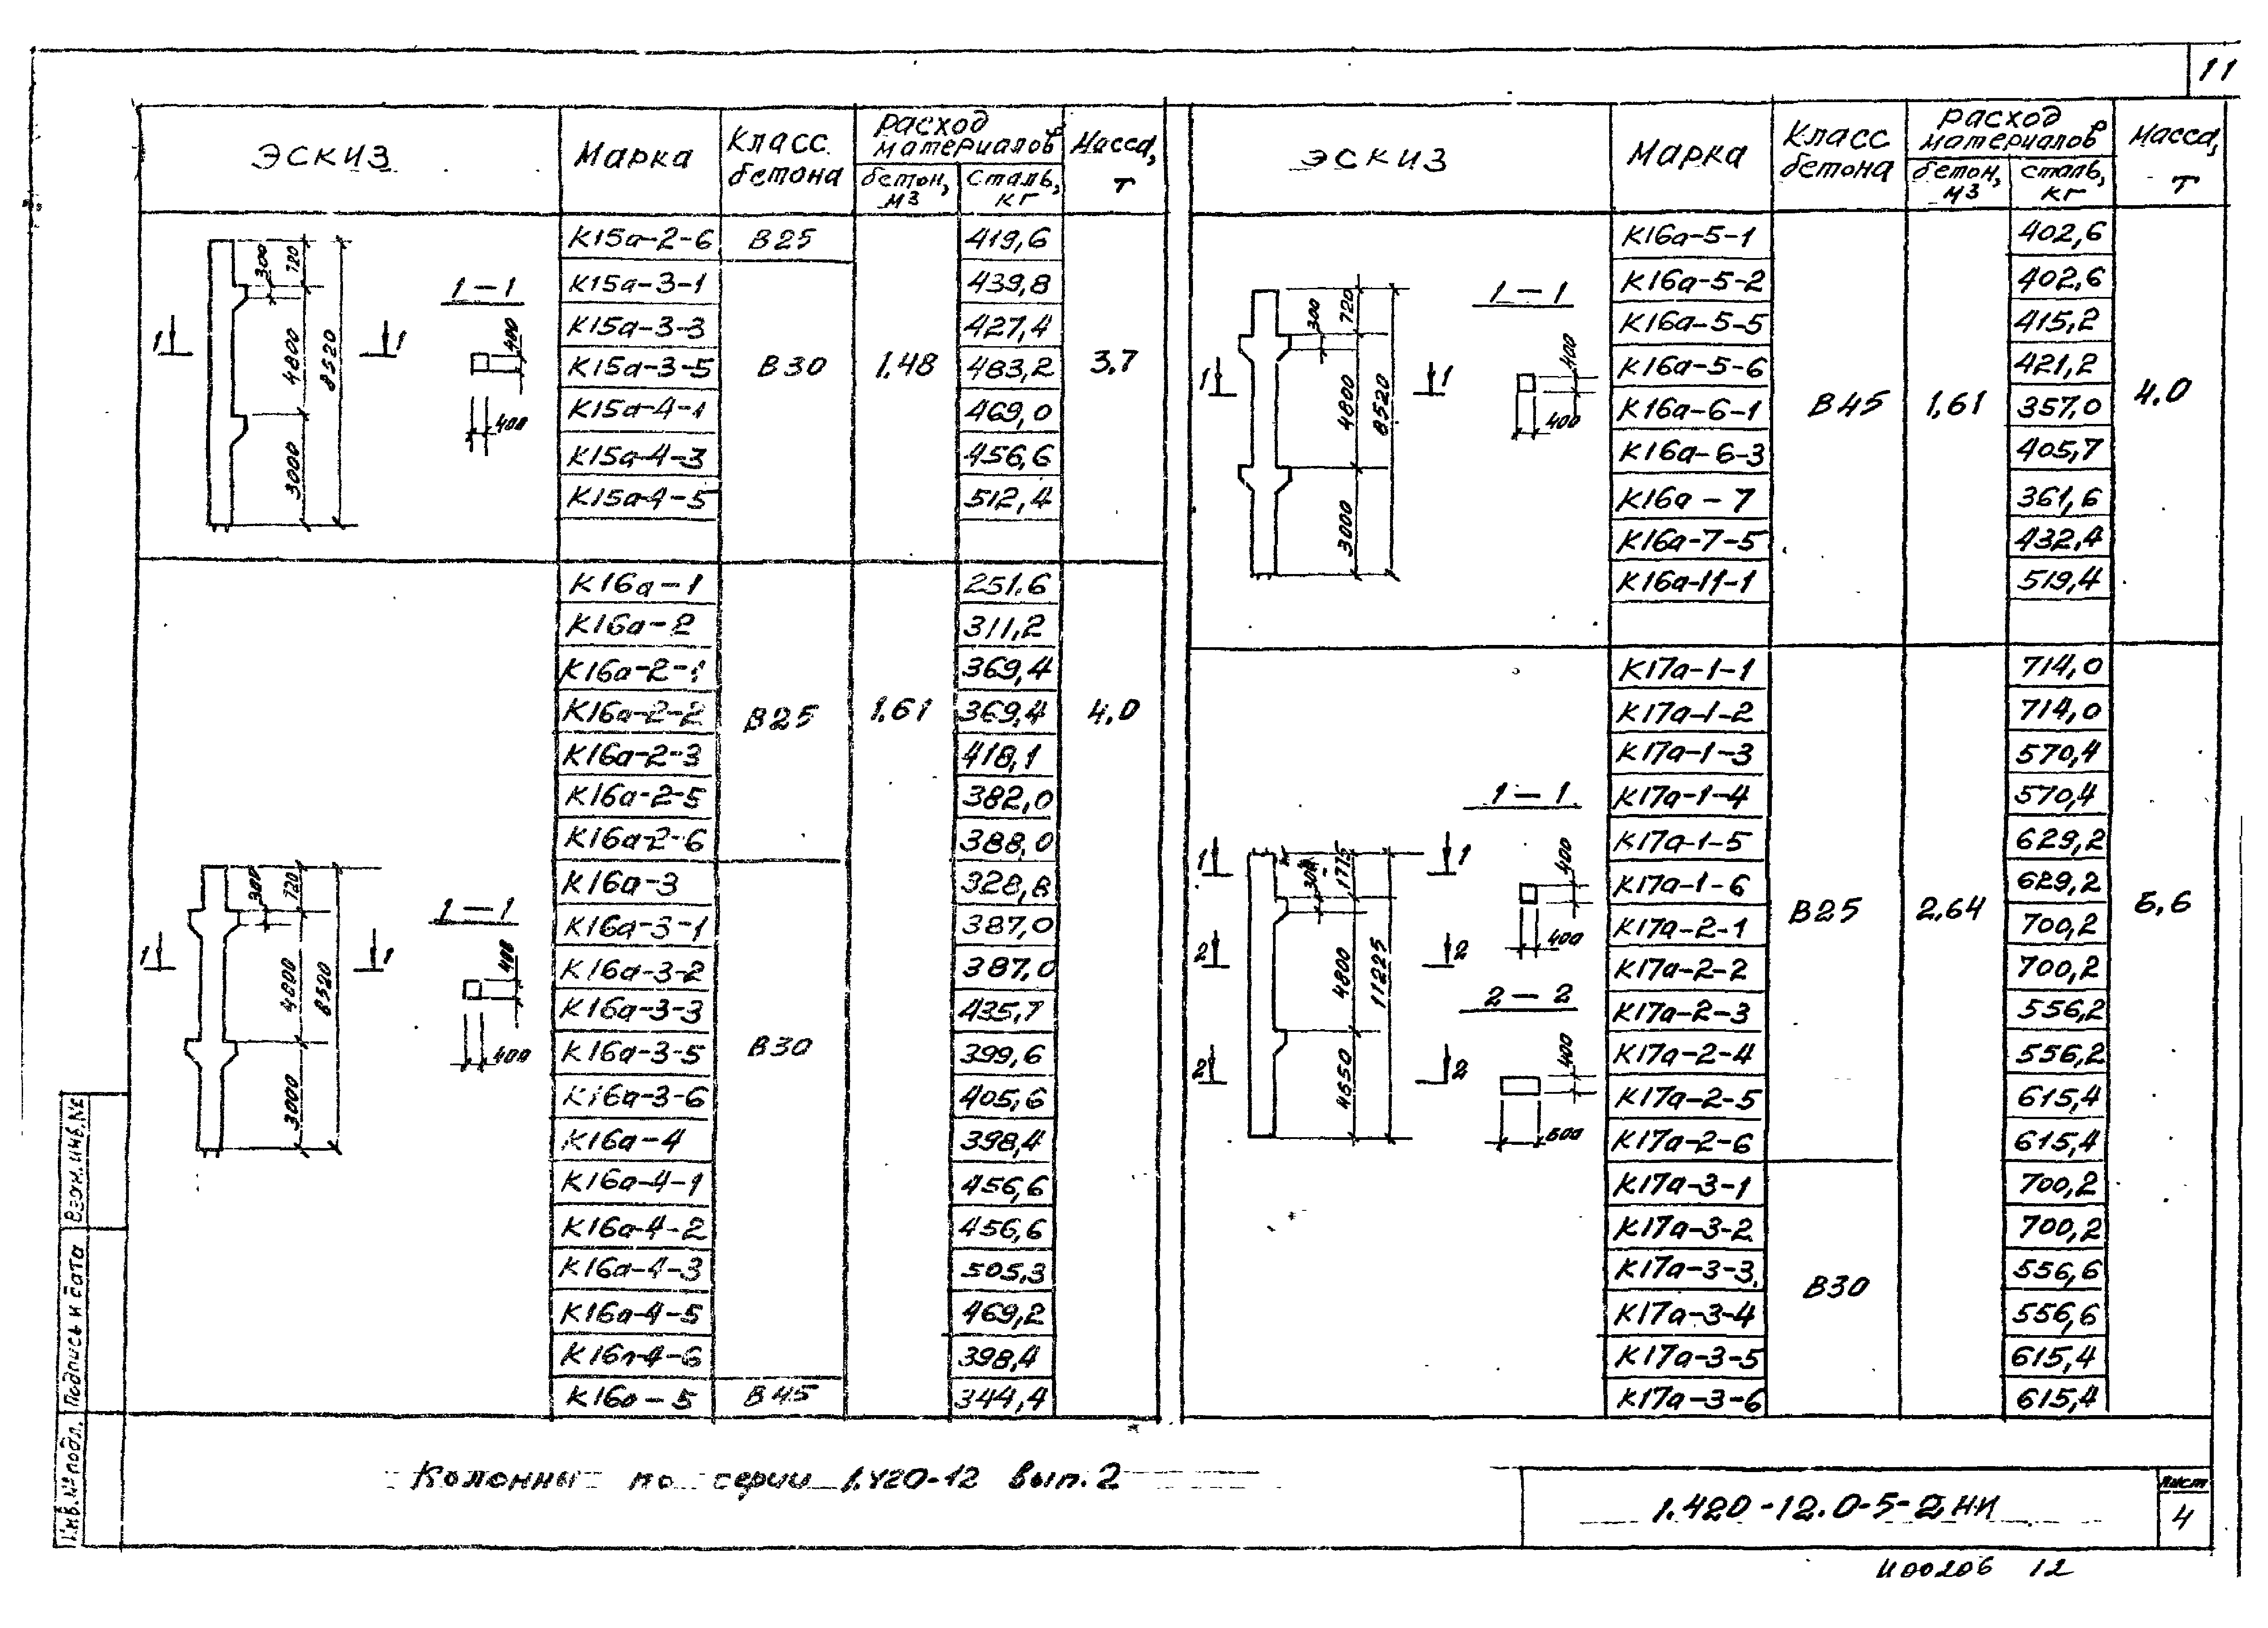 11
ЭСКИЗ Марка Класс бетона Расход материалов Масса, т
бетон, м3 сталь, кг
К15а-2-6 В25 419,6
К15а-3-1 439,8
К15а-3-3 427,4
К15а-3-5 В30 1.48 483,2 3.7
К15а-4-1 469,0
К15а-4-3 456,6
К15а-4-5 512,4
300 720 4800 8520 3000
1 1
1-1
400
400
К16а-1 251.6
К16а-2 311,2
К16а-2-1 369,4
К16а-2-2 В25 1.61 369,4 4.0
К16а-2-3 418,1
К16а-2-5 382,0
К16а-2-6 388,0
К16а-3 328,8
К16а-3-1 387,0
К16а-3-2 387,0
К16а-3-3 435,7
К16а-3-5 В30 399,6
К16а-3-6 405,6
К16а-4 398,4
К16а-4-1 456,6
К16а-4-2 456,6
К16а-4-3 505,3
К16а-4-5 469,2
К16а-4-6 398,4
К16а-5 В45 344,4
300 720 4800 8520 3000
1 1
1-1
400
400
ЭСКИЗ Марка Класс бетона Расход материалов Масса, т
бетон, м3 сталь, кг
К16а-5-1 402,6
К16а-5-2 402,6
К16а-5-5 415,2
К16а-5-6 421,2
К16а-6-1 В45 1,61 357,0 4.0
К16а-6-3 405,7
К16а-7 361,6
К16а-7-5 432,4
К16а-11-1 519,4
300 720 4800 8520 3000
1 1
1-1
400
400
К17а-1-1 714,0
К17а-1-2 714,0
К17а-1-3 570,4
К17а-1-4 570,4
К17а-1-5 629,2
К17а-1-6 В25 2,64 629,2 6,6
К17а-2-1 700,2
К17а-2-2 700,2
К17а-2-3 556,2
К17а-2-4 556,2
К17а-2-5 615,4
К17а-2-6 615,4
К17а-3-1 700,2
К17а-3-2 700,2
К17а-3-3 В30 556,6
К17а-3-4 556,6
К17а-3-5 615,4
К17а-3-6 615,4
300 1775 4800 11225 4650
1 1
2 2
2 2
1-1
400
400
2-2
400
600
Взам. инв. №
Подпись и дата
Инв. № подл.
Колонны по серии 1.420-12 вып.2
1.420-12.0-5-2НИ
Лист
4
Ц00206 12